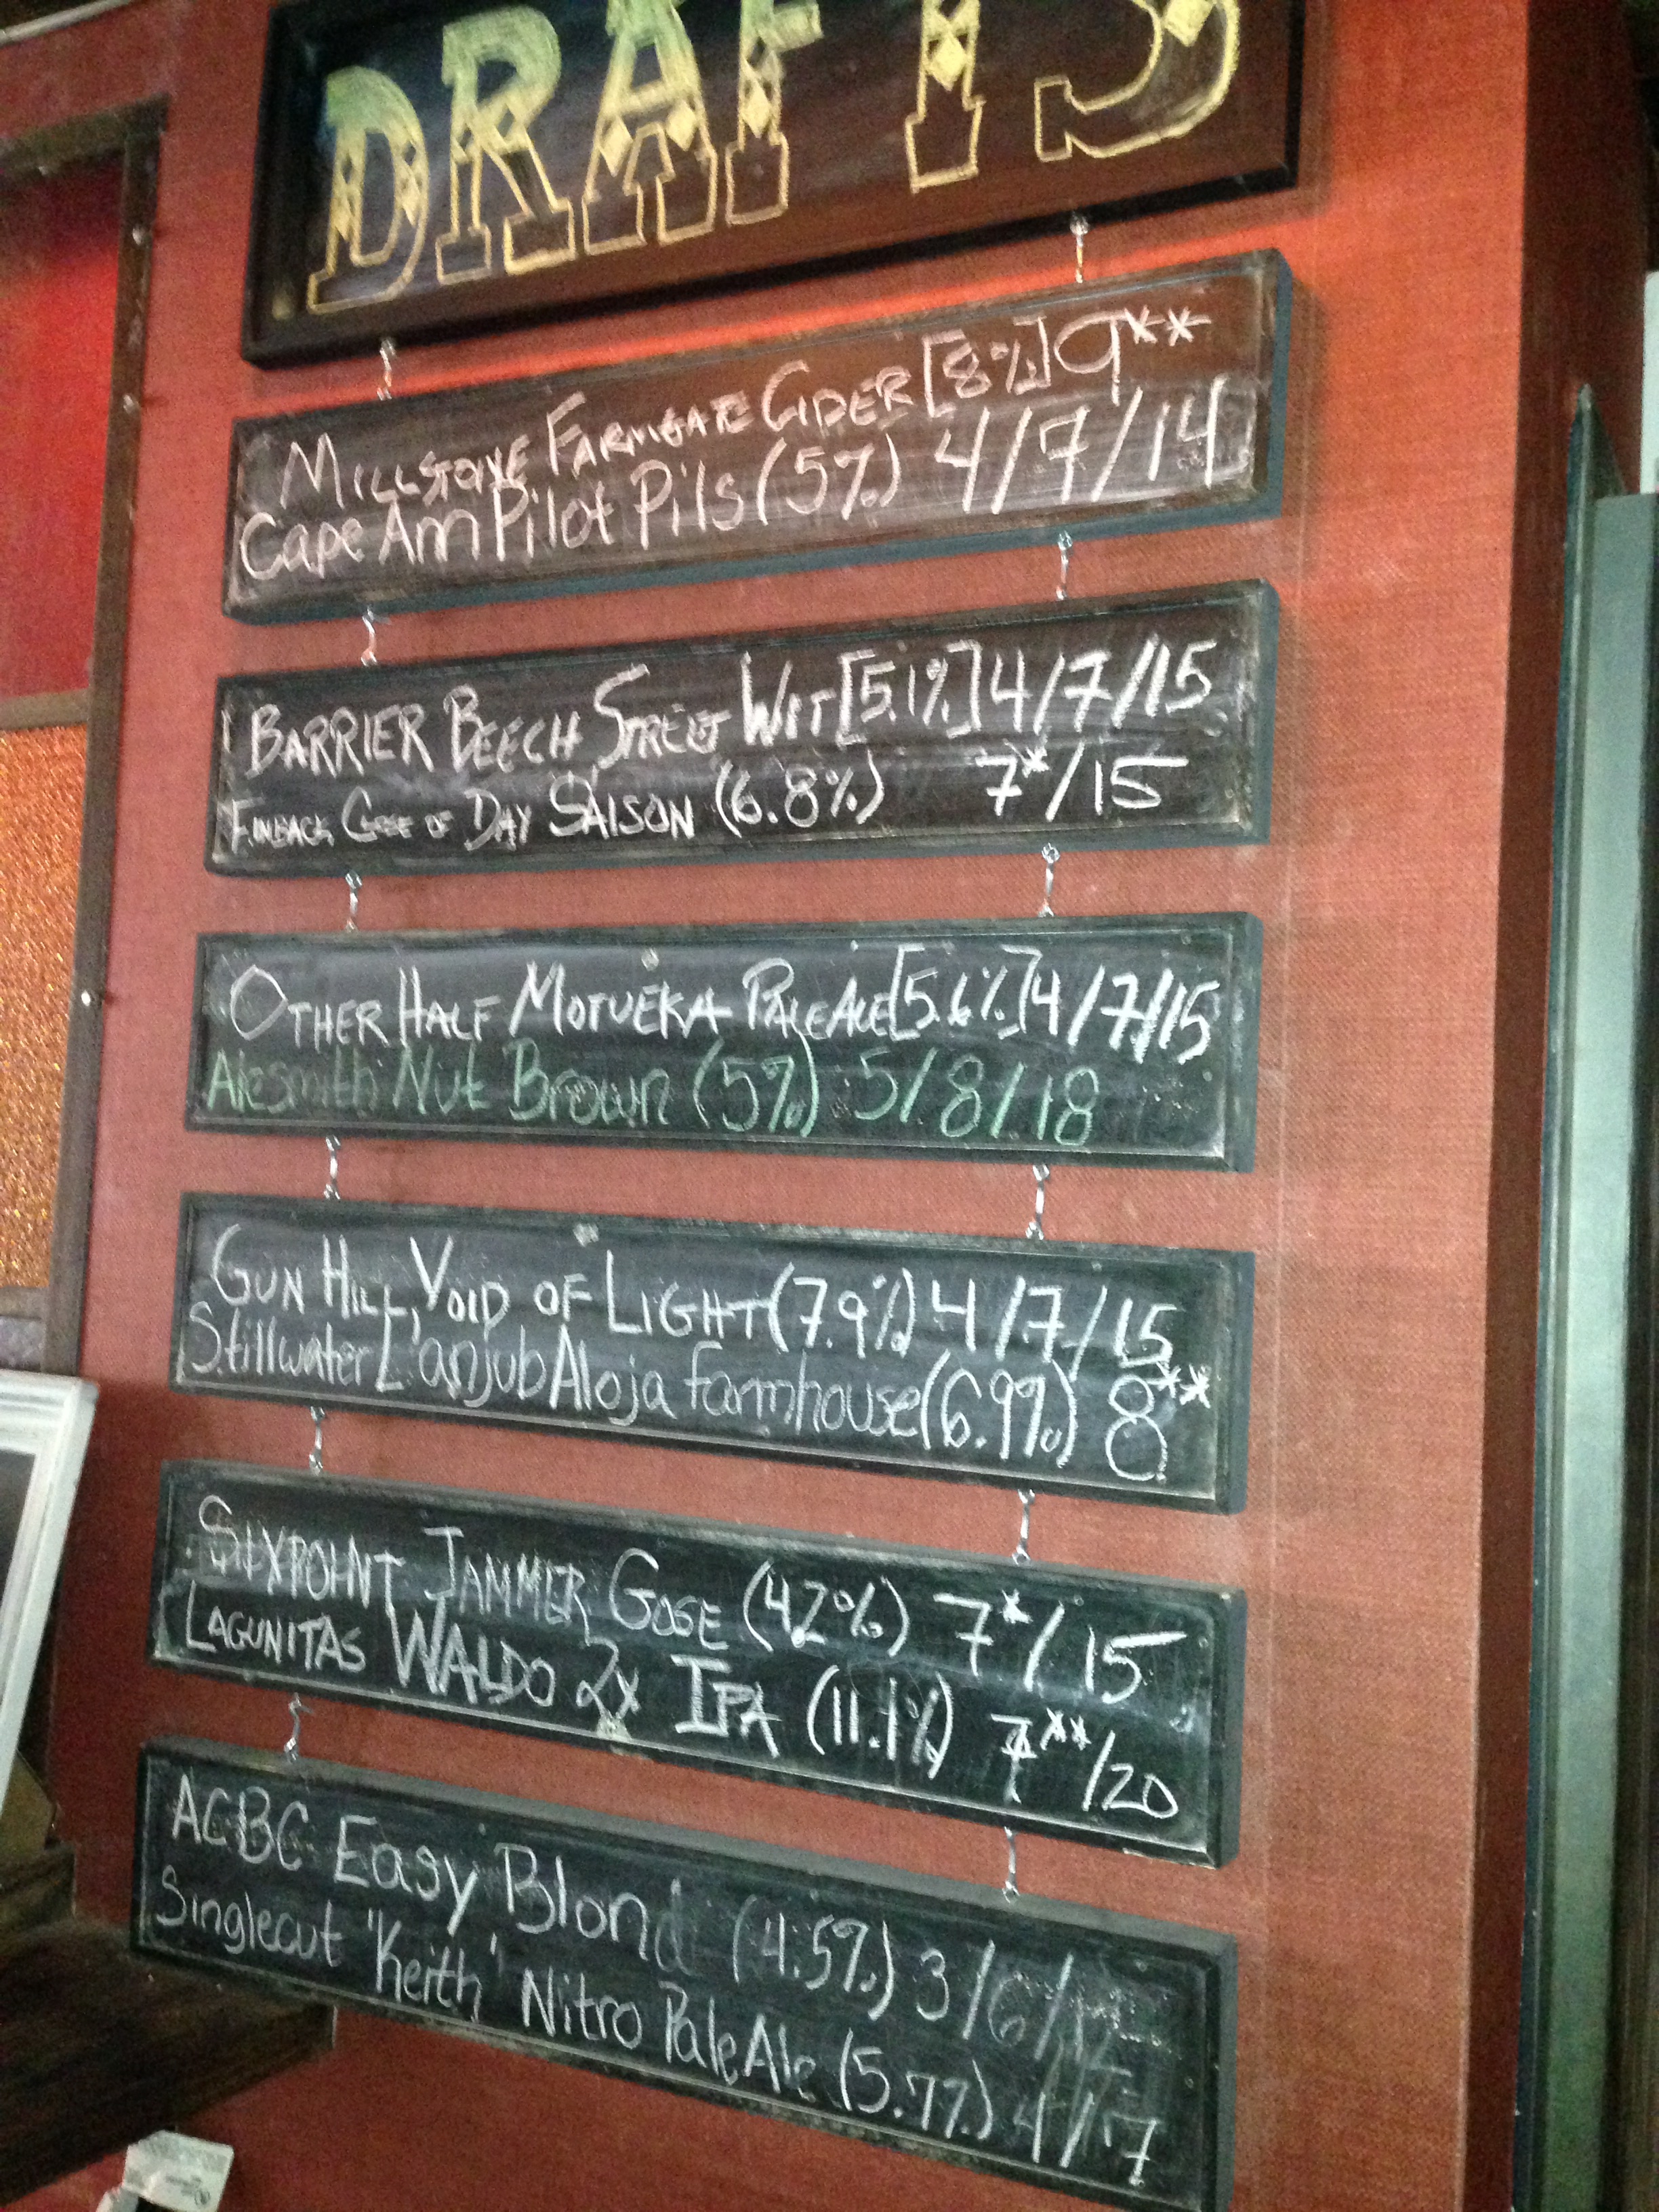 DRAFTS
MILLSTONE FARMGATE CIDER [8%] 9**
Cape Ann Pilot Pils (5%) 4/7/14
BARRIER BEECH STREET WIT [5.1%] 4/7/15
FINBACK OF DAY SAISON (6.8%) 7*/15
OTHER HALF MOTUEKA PALE ALE [5.6%] 4/7/15
Alesmith Nut Brown (5%) 5/8/18
GUN HILL, VOID OF LIGHT (7.9%) 4/7/15
Stillwater L'anjub Aloja farmhouse (6.9%) 8**
SIXPOINT JAMMER GOSE (4.2%) 7*/15
LAGUNITAS WALDO 2x IPA (11.1%) 7**/20
ACBC Easy Blond (4.5%) 3/6/12
Singlecut 'Keith' Nitro Pale Ale (5.7%) 4/7